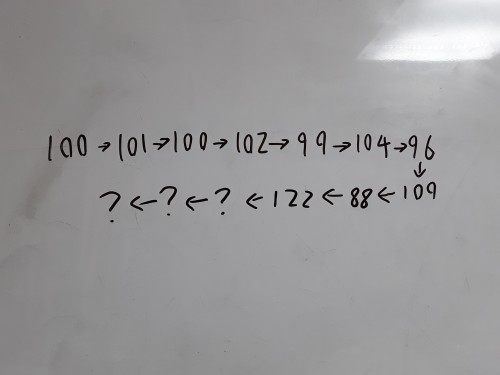 100 → 101 → 100 → 102 → 99 → 104 → 96
↓
? ← ? ← ? ← 122 ← 88 ← 109